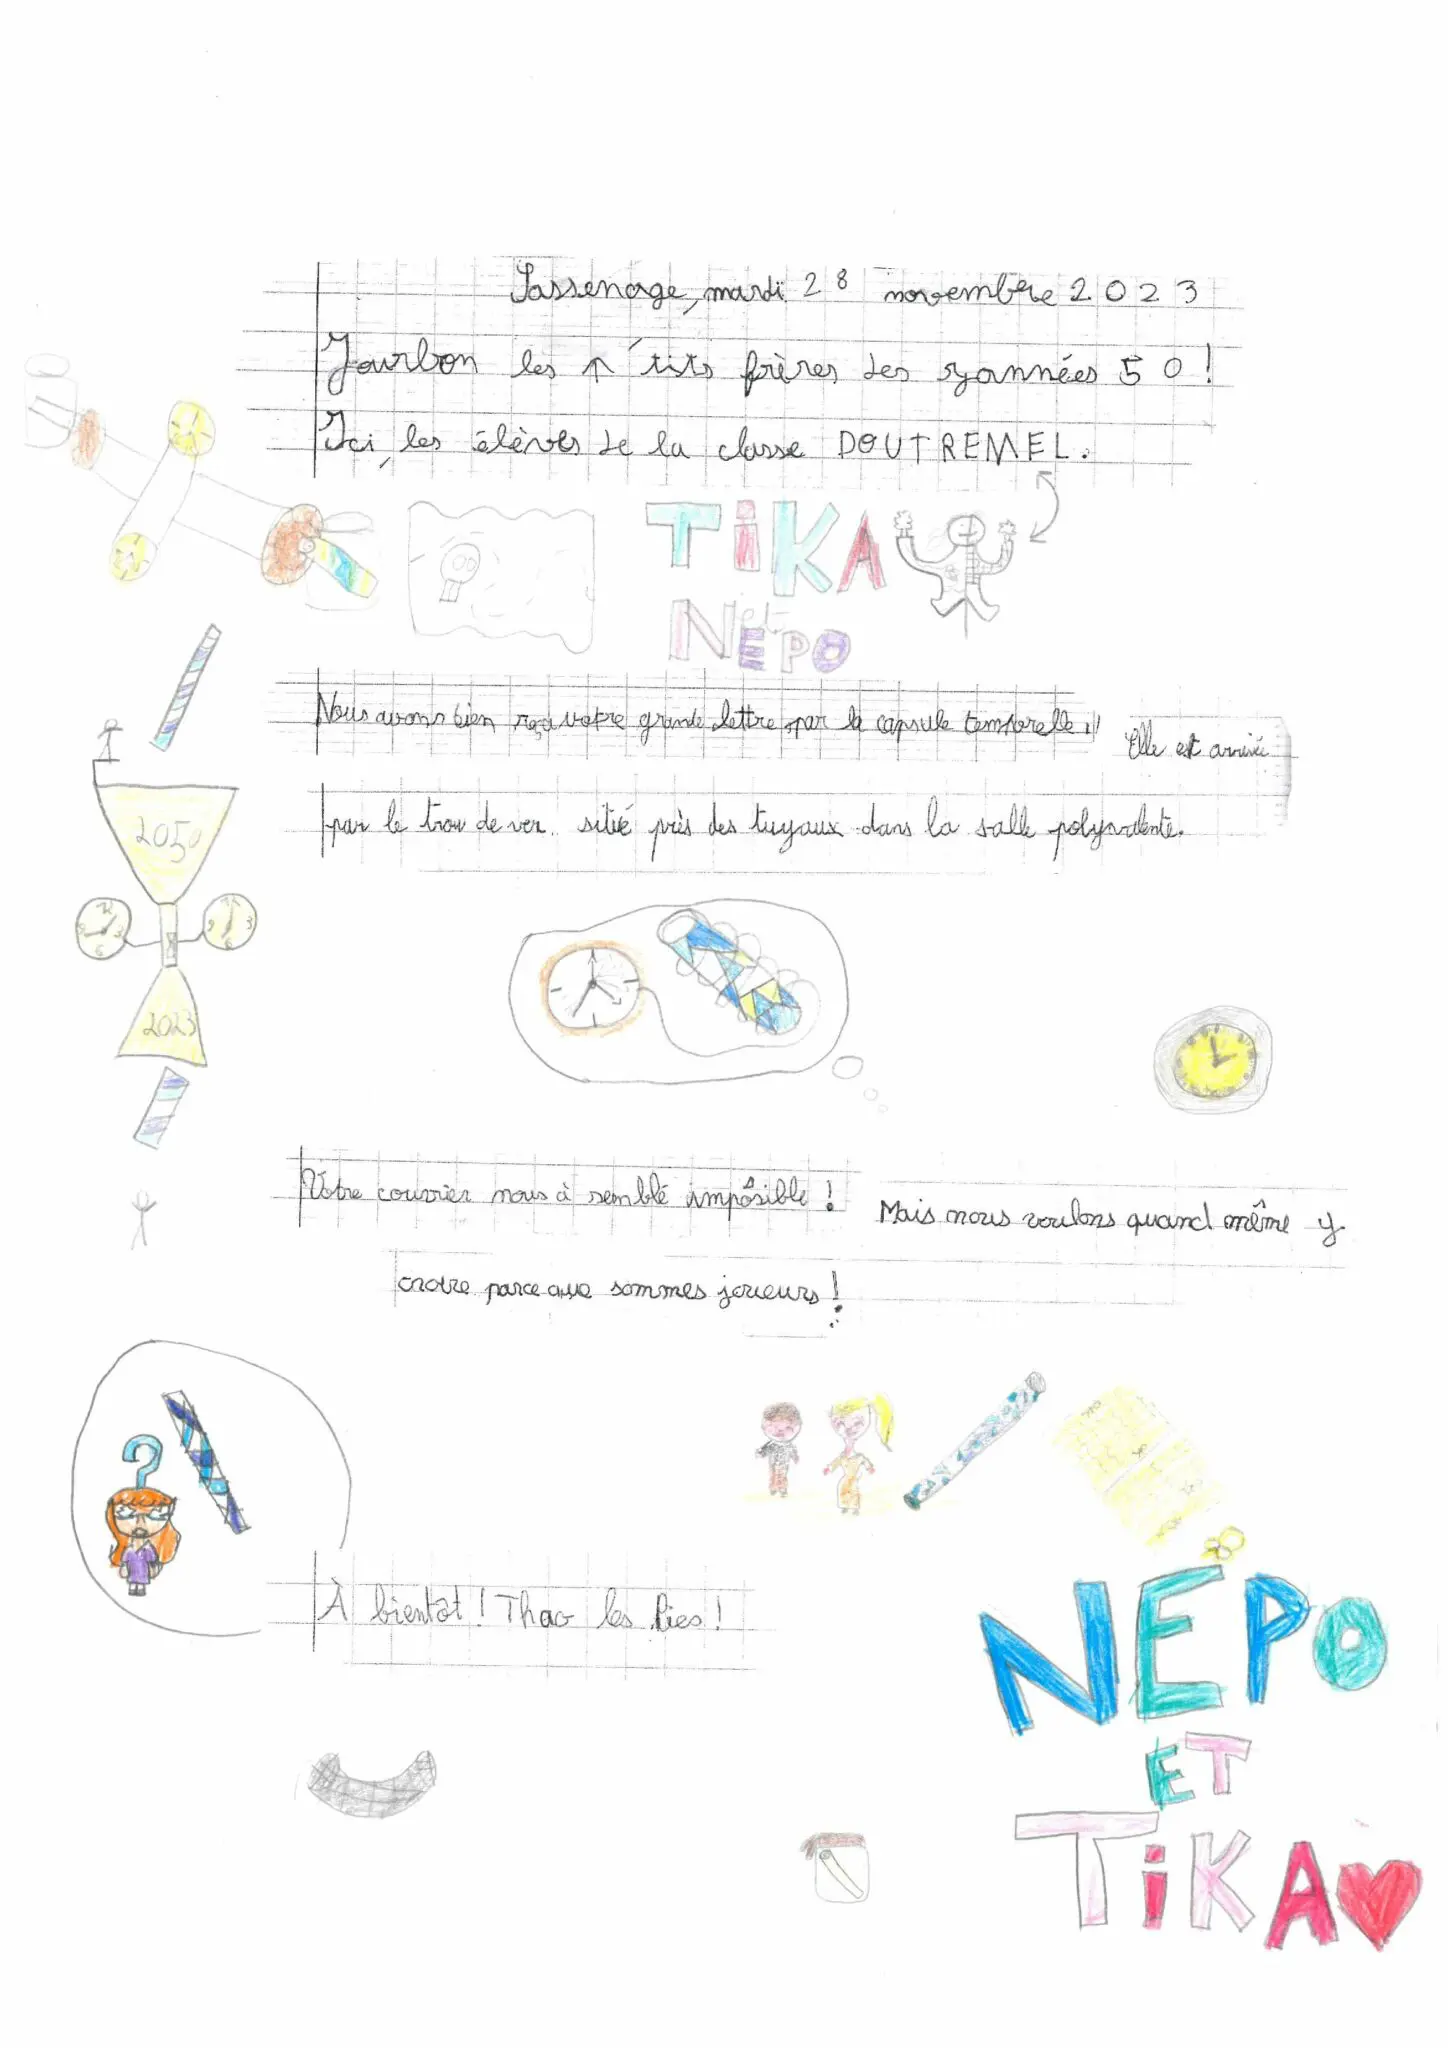 Sassenage, mardi 28 novembre 2023
Jourbon les p'tits frères des zyannées 50!
Ici, les élèves de la classe DOUTREMEL.
TiKA
et
NEPO
Nous avons bien reçu votre grande lettre, par la capsule temporelle!! Elle est arrivée
par le trou de ver situé près des tuyaux dans la salle polyvalente.
2050
2023
Votre courrier nous à semblé impôsible! Mais nous voulons quand même y
croire parce que sommes joueurs!
?
À bientôt! Thao les Pies!
NÉPO
ET
TiKA